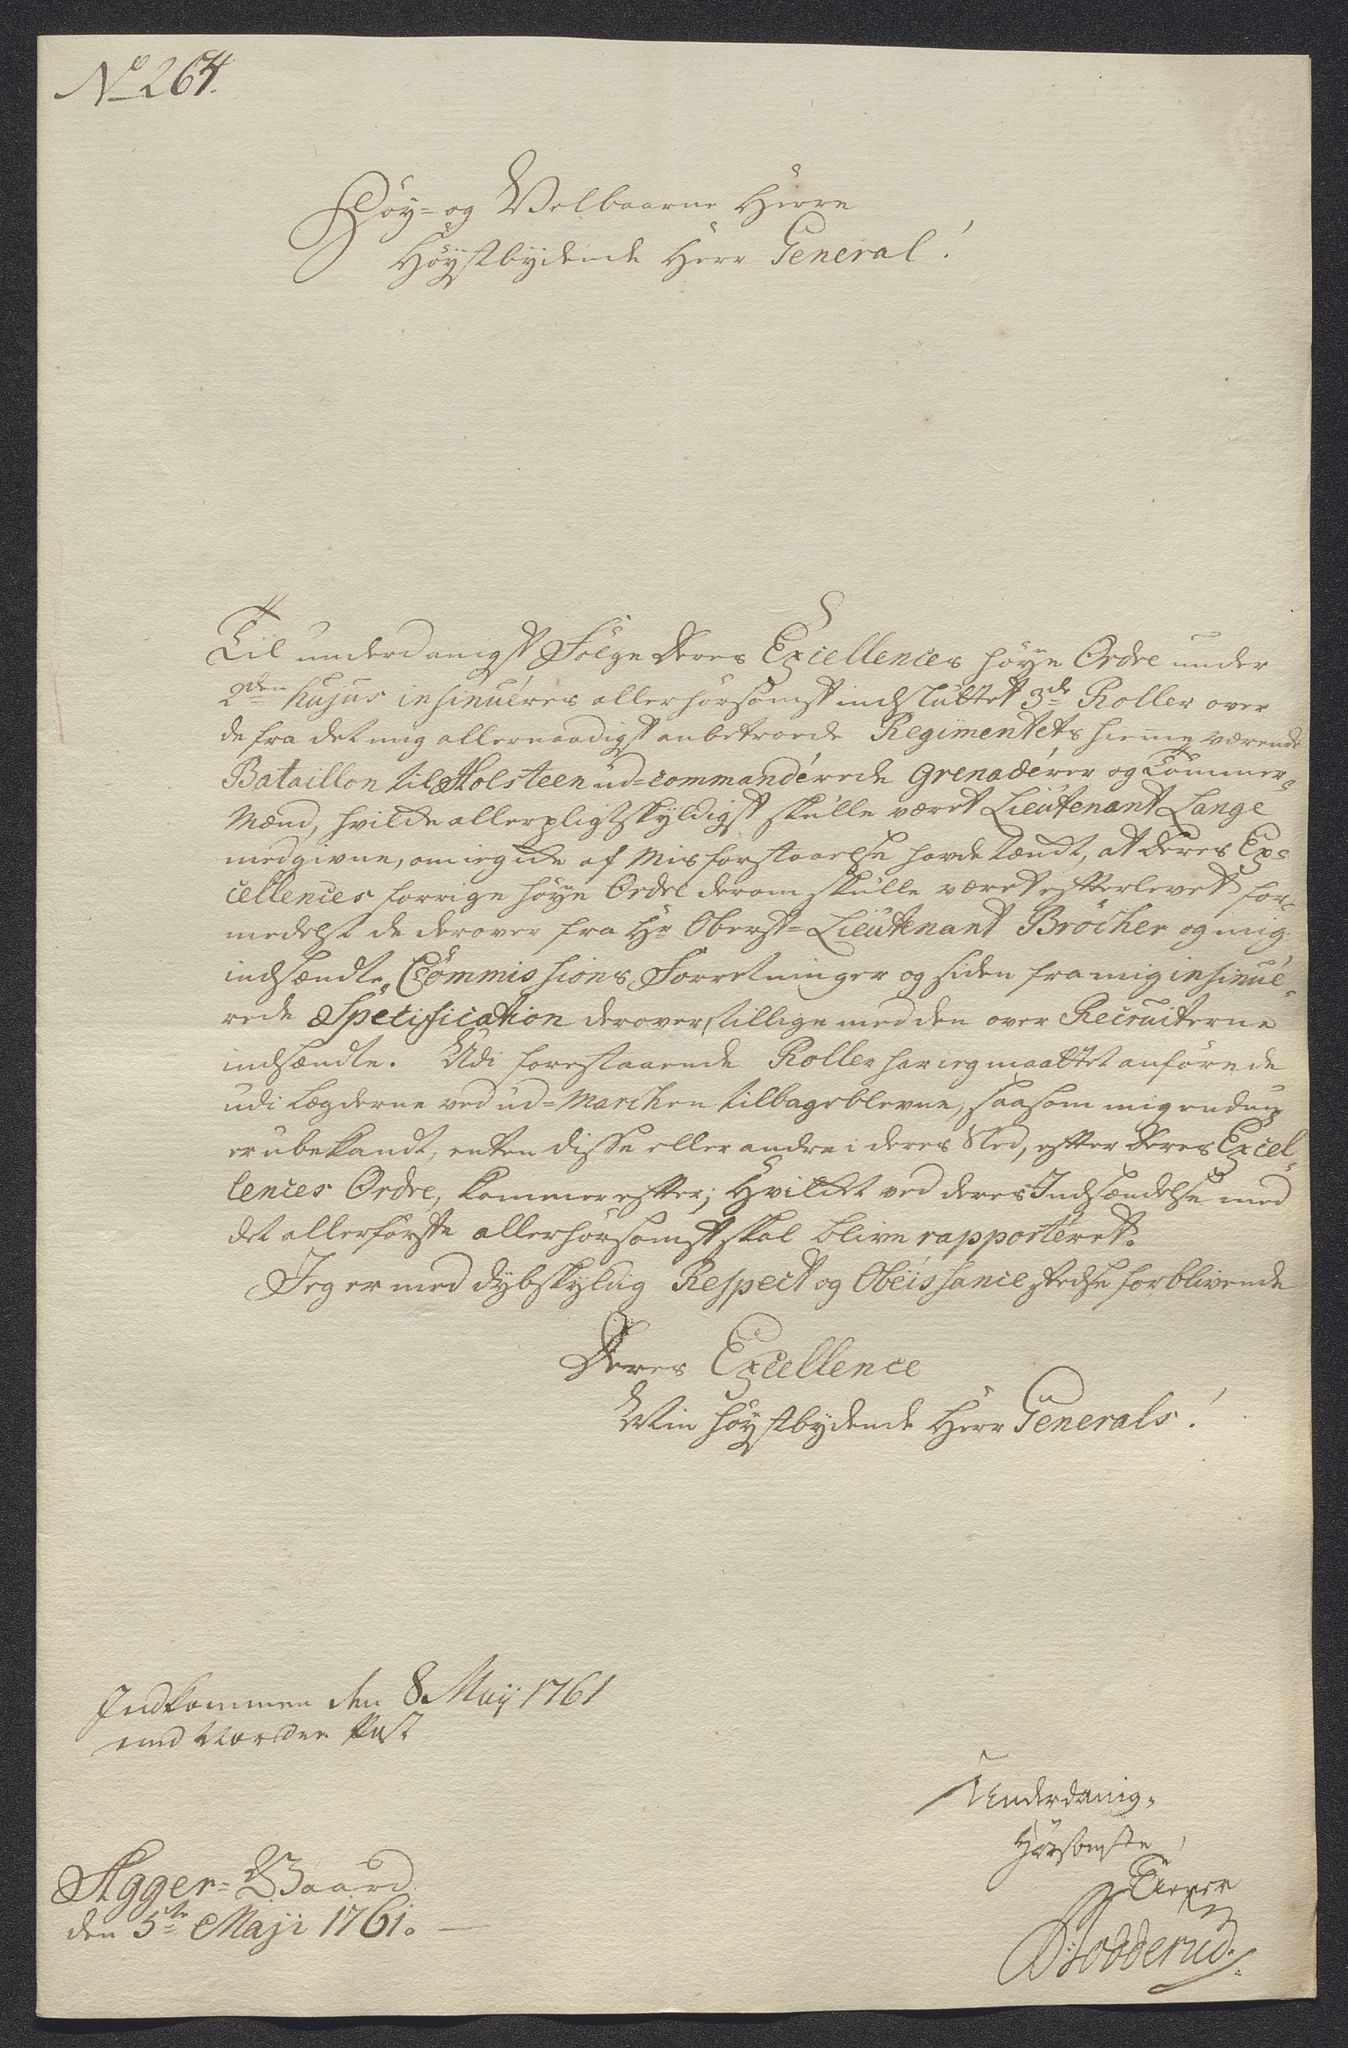 No 264.
Høy- og Velbaarne Herre
Høystbydende Herr General!
Til underdanigst Følge Deres Excellences høye Ordre under
2den hujus insinuéres allerhørsomst indsluttet 3de Roller over
de fra det mig allernaadigst anbetroede Regimentets hiemeværende
Bataillon til Holsteen ud-commandérede Grenadérer og Tømmer-
Mænd, hvilde allerpligtskyldigst skulle været Lieutenant Lange
medgivne, om ieg icke af Misforstaaelse havde tændt, at Deres Ex-
cellences forrige høye Ordre derom skulle været efterlevet for-
medelst de derover fra Hr Oberst-Lieutenant Bröcher og mig
indsændte Commissions Forretninger og siden fra mig insinué-
rede Specification derover, tillige med den over Recruiterne
indsændte. Udi forestaaende Roller har ieg maattet anføre de
udi Lægderne ved ud-Marchen tilbageblevne, saasom mig endnu
er ubekandt, enten disse eller andre i deres Sted, efter Deres Excel-
lences Ordre, kommer efter; Hvilket ved deres Indsændelse med
det allerførste allerhørsomst skal blive rapportéret.
Jeg er med dybskyldig Respect og Obeissance stedse forblivende
Deres Excellence
Min høystbydende Herr Generals!
Indkommen den 8 Maij 1761
med Norden Post
Underdanig-
Hørsomste
Tiener
Hodderud.
Agger-Gaard
den 5te Maji 1761.